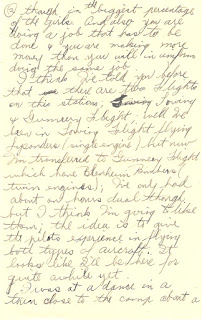 ② though in the biggest percentage
of the girls. And also you are
doing a job that has to be
done & you are making more
money than you will in uniform
doing the same job.
I think I've told you before
that there are two flights
on this station, Towing
& Gunnery Flight, well I've
been in Towing Flight flying
Lysanders (single engine) but now
I'm transferred to Gunnery Flight
which have Blenheim Bombers (
twin engines); I've only had
about an hours dual though,
but I think I'm going to like
them; the idea is to give
the pilots experience in flying
both types of aircraft. It
looks like I'll be here for
quite awhile yet.
I was at a dance in a
town close to the camp about a